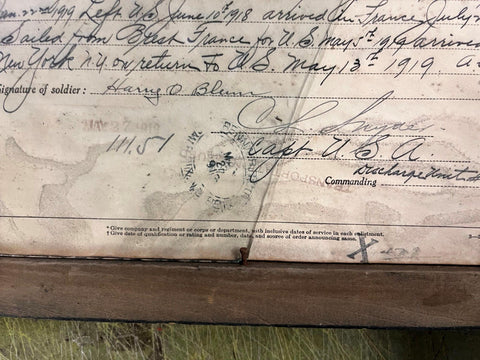 1919 Left U.S June 10th 1918 arrived in France July
Sailed from Brest France for U.S May 5th 1919 arrived
New York N.Y. on return to U.S. May 13th 1919. a
Signature of soldier: Harry O Blum
111.51
Capt U.S.A
Discharge
Commanding
* Give company and regiment or corps or department, with inclusive dates of service in each enlistment.
† Give date of qualification or rating and number, date, and source of order announcing same.
X